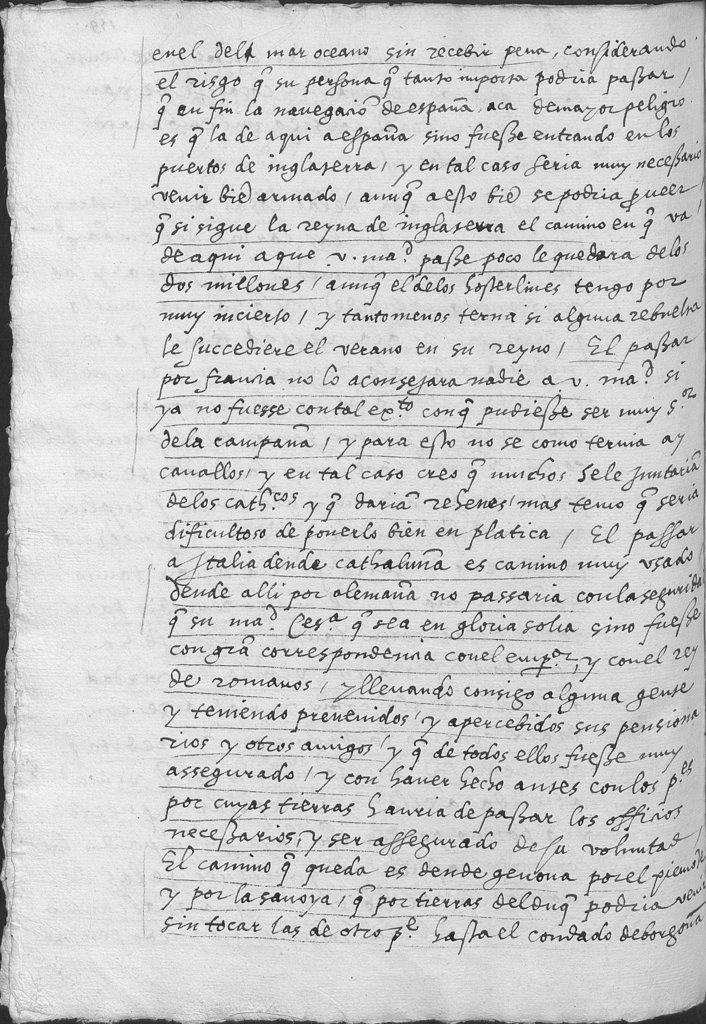 enel dela mar oceano sin recebir pena, considerando
el risgo q̃ su persona q̃ tanto importa podria paßar,
q̃ en fin la navegaciõ de españa, aca demayor peligro
es q̃ la de aqui a españa sino fueße entrando en los
puertos de inglaterra, y en tal caso seria muy neceßario
venir biẽ armado, aunq̃ a esto biẽ se podria proueer,
q̃ si sigue la reyna de inglaterra el camino en q̃ va
de aqui a que .v. ma.d paße poco le quedara delos
dos millones, aunq̃ el delos hosterlines tengo por
muy incierto, y tanto menos terna si alguna rebuelta
le succediere el verano en su reyno, El paßar
por francia no lo aconsejara nadie a v. ma.d si
ya no fuesse con tal ex.to conq̃ pudieße ser muy s.or
dela campaña, y para esto no se como ternia ay
cavallos, y en tal caso creo q̃ muchos sele juntariã
delos cath.cos y q̃ dariã rehenes, mas temo q̃ seria
dificultoso de ponerlo bien en platica, El passar
a Italia dende cathaluña es camino muy usado,
dende alli por alemaña no passaria con la segurida
q̃ su ma.d Ces.a q̃ sea en gloria solia sino fueße
con grã correspondencia conel emp.or, y conel rey
de romanos, y llevando consigo alguna gente
y teniendo prevenidos, y apercebidos sus pensiona
rios y otros amigos, y q̃ de todos ellos fueße muy
assegurado, y con haver hecho antes con los p.es
por cuyas tierras hauria de paßar los officios
neceßarios, y ser assegurado de su voluntad,
El camino q̃ queda es dende genova por el piemõte
y por la savoya, q̃ por tierras del duq̃ podria venir
sin tocar las de otro p.e hasta el condado de borgoña